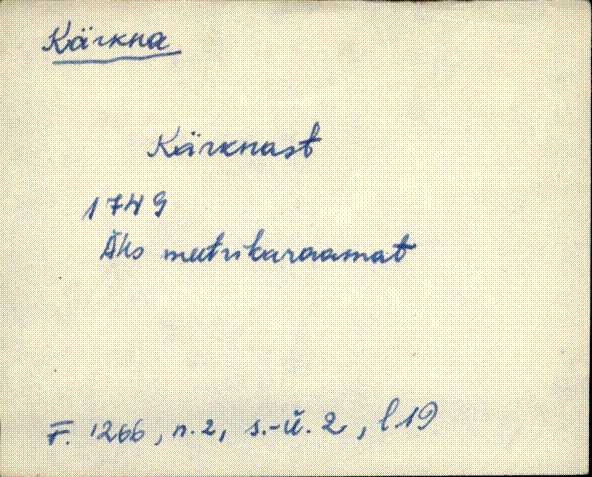 Kärkna
Kärknast
1749
Äks meetrikaraamat
F. 1266, n. 2, s.-ü. 2, l 19